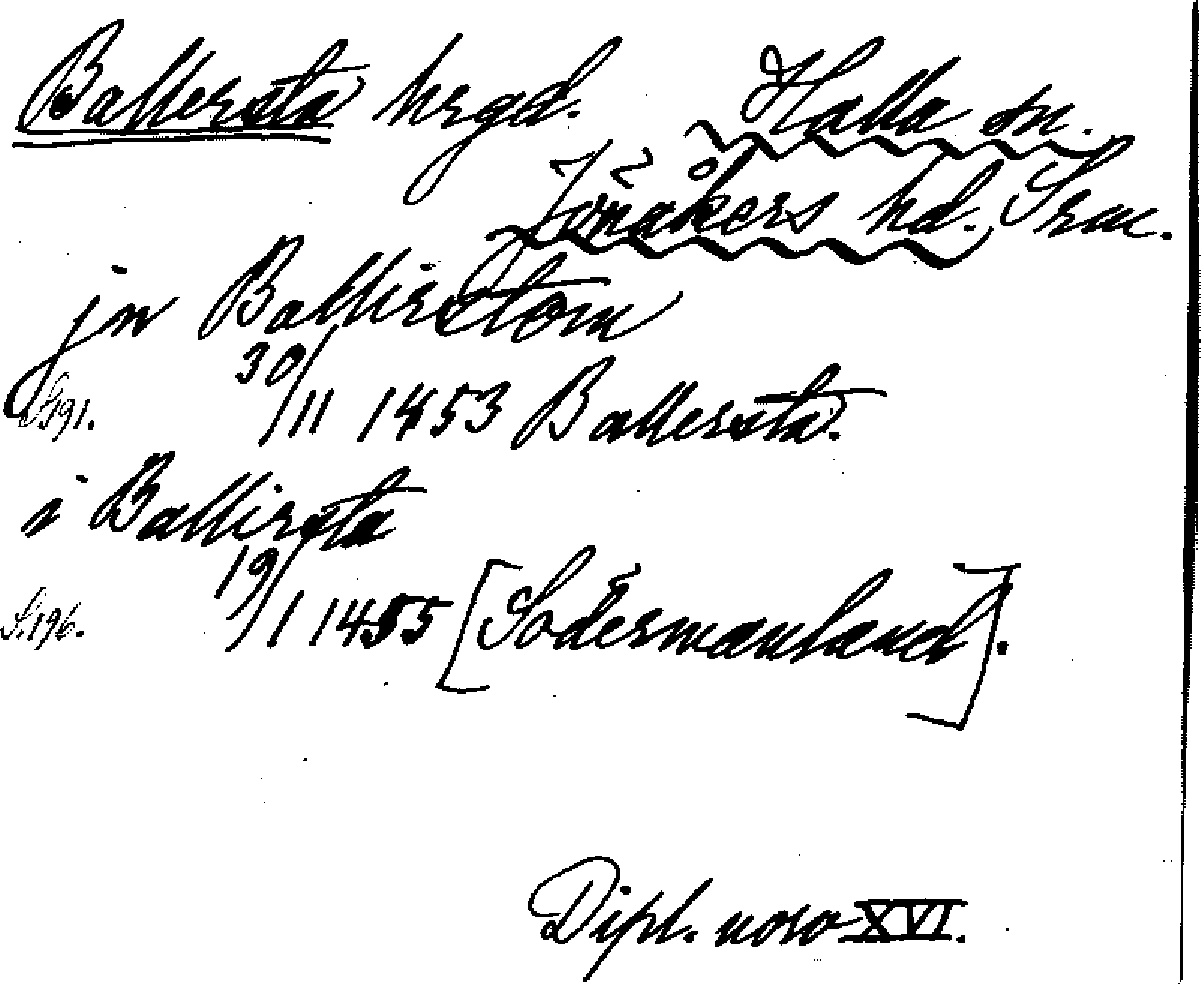 Ballersta hrgd. Halla sn.
Jönåkers hd. Srm.
jn Ballirstom
S.191. 30/11 1453 Ballersta.
i Ballirsta
S.196. 19/1 1455 [Södermanland].
Dipl. noro XVI.